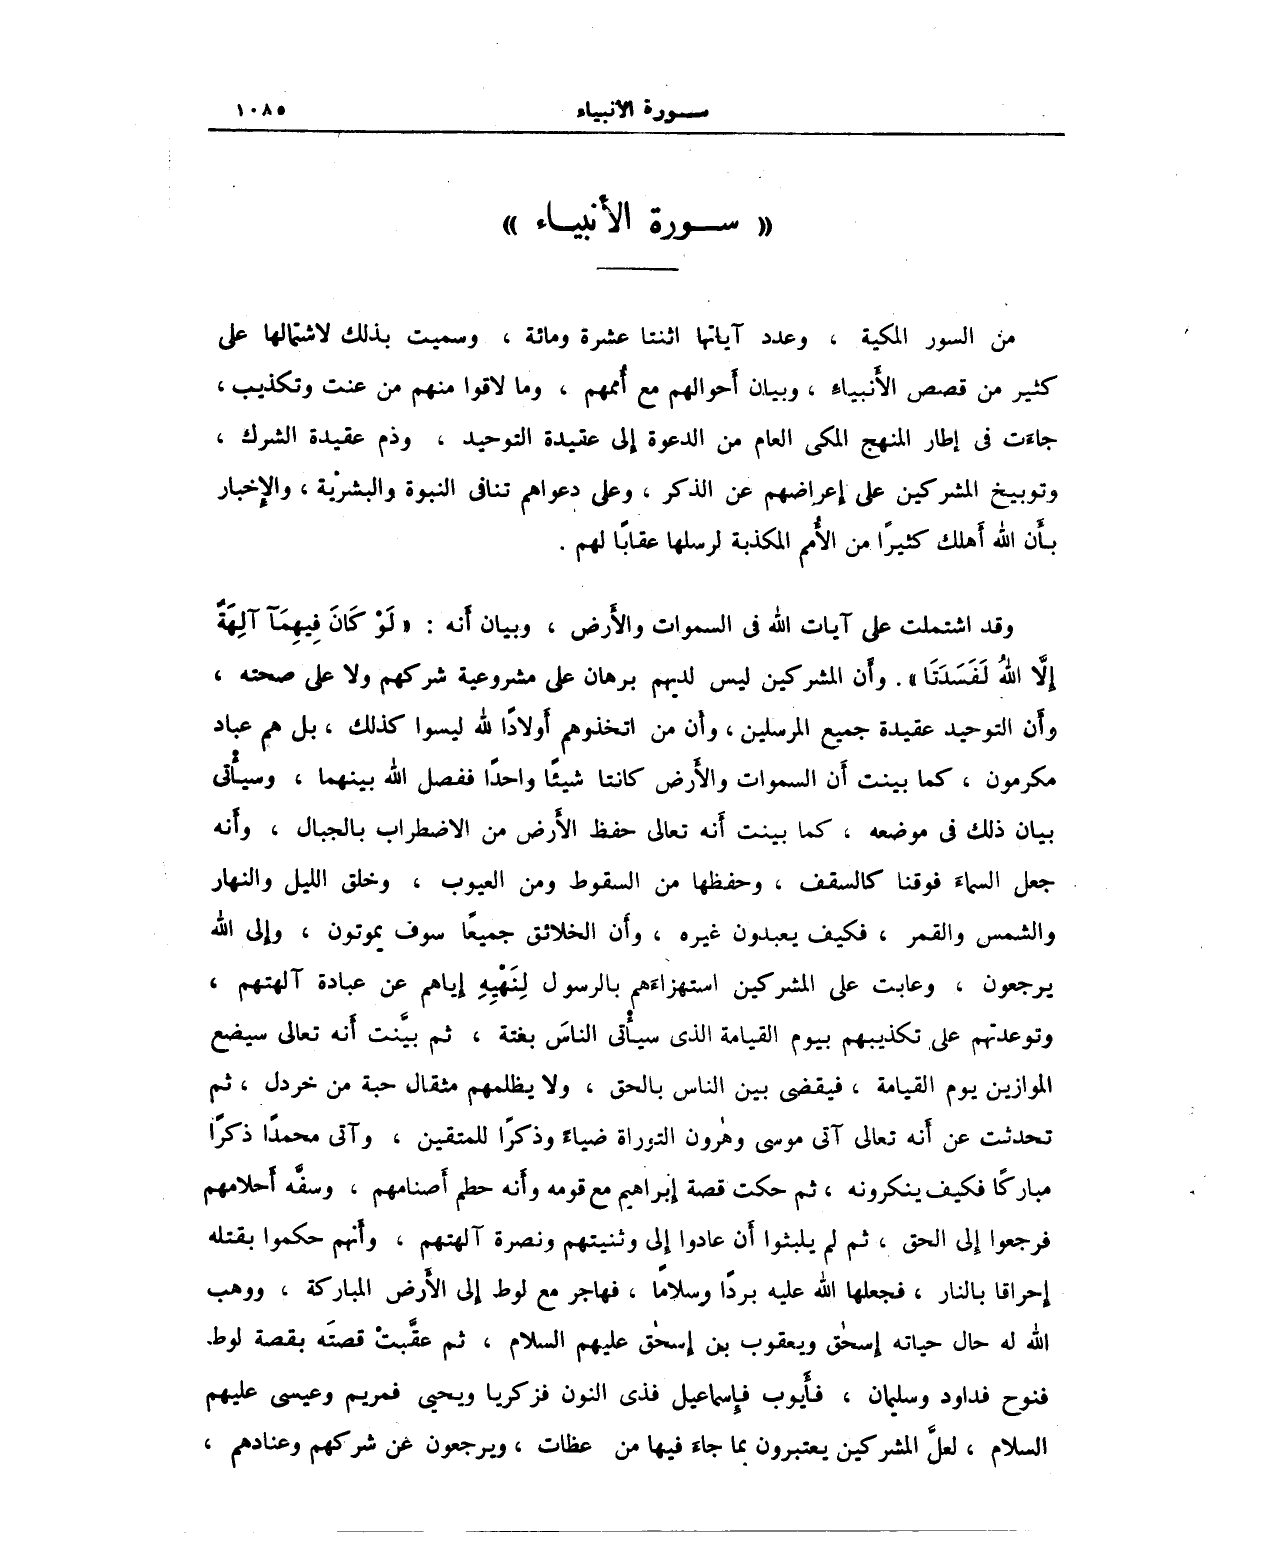 سـورة الأنبياء ١٠٨٥
« سـورة الأنبياء »
من السور المكية ، وعدد آياتها اثنتا عشرة ومائة ، وسميت بذلك لاشتمالها على
كثير من قصص الأنبياء ، وبيان أحوالهم مع أُممهم ، وما لاقوا منهم من عنت وتكذيب ،
جاءت فى إطار المنهج المكى العام من الدعوة إلى عقيدة التوحيد ، وذم عقيدة الشرك ،
وتوبيخ المشركين على إعراضهم عن الذكر ، وعلى دعواهم تنافى النبوة والبشرية ، والإخبار
بأن الله أهلك كثيرًا من الأُمم المكذبة لرسلها عقابًا لهم .
وقد اشتملت على آيات الله فى السموات والأرض ، وبيان أنه : « لَوْ كَانَ فِيهِمَآ آلِهَةٌ
إِلَّا اللهُ لَفَسَدَتَا » . وأن المشركين ليس لديهم برهان على مشروعية شركهم ولا على صحته ،
وأن التوحيد عقيدة جميع المرسلين ، وأن من اتخذوهم أولادًا لله ليسوا كذلك ، بل هم عباد
مكرمون ، كما بينت أن السموات والأرض كانتا شيئًا واحدًا ففصل الله بينهما ، وسيأتى
بيان ذلك فى موضعه ، كما بينت أنه تعالى حفظ الأرض من الاضطراب بالجبال ، وأنه
جعل السماء فوقنا كالسقف ، وحفظها من السقوط ومن العيوب ، وخلق الليل والنهار
والشمس والقمر ، فكيف يعبدون غيره ، وأن الخلائق جميعًا سوف يموتون ، وإلى الله
يرجعون ، وعابت على المشركين استهزاءهم بالرسول لِنَهْيِهِ إياهم عن عبادة آلهتهم ،
وتوعدتهم على تكذيبهم بيوم القيامة الذى سيأتى الناسَ بغتة ، ثم بيَّنت أنه تعالى سيضع
الموازين يوم القيامة ، فيقضى بين الناس بالحق ، ولا يظلمهم مثقال حبة من خردل ، ثم
تحدثت عن أنه تعالى آتى موسى وهٰرون التوراة ضياءً وذكرًا للمتقين ، وآتى محمدًا ذكرًا
مباركًا فكيف ينكرونه ، ثم حكت قصة إبراهيم مع قومه وأنه حطم أصنامهم ، وسفَّه أحلامهم
فرجعوا إلى الحق ، ثم لم يلبثوا أن عادوا إلى وثنيتهم ونصرة آلهتهم ، وأنهم حكموا بقتله
إحراقا بالنار ، فجعلها الله عليه بردًا وسلامًا ، فهاجر مع لوط إلى الأرض المباركة ، ووهب
الله له حال حياته إسحٰق ويعقوب بن إسحٰق عليهم السلام ، ثم عقَّبتْ قصتَه بقصة لوط
فنوح فداود وسليمان ، فأيوب فإسماعيل فذى النون فزكريا ويحيى فمريم وعيسى عليهم
السلام ، لعلَّ المشركين يعتبرون بما جاء فيها من عظات ، ويرجعون عن شركهم وعنادهم ،